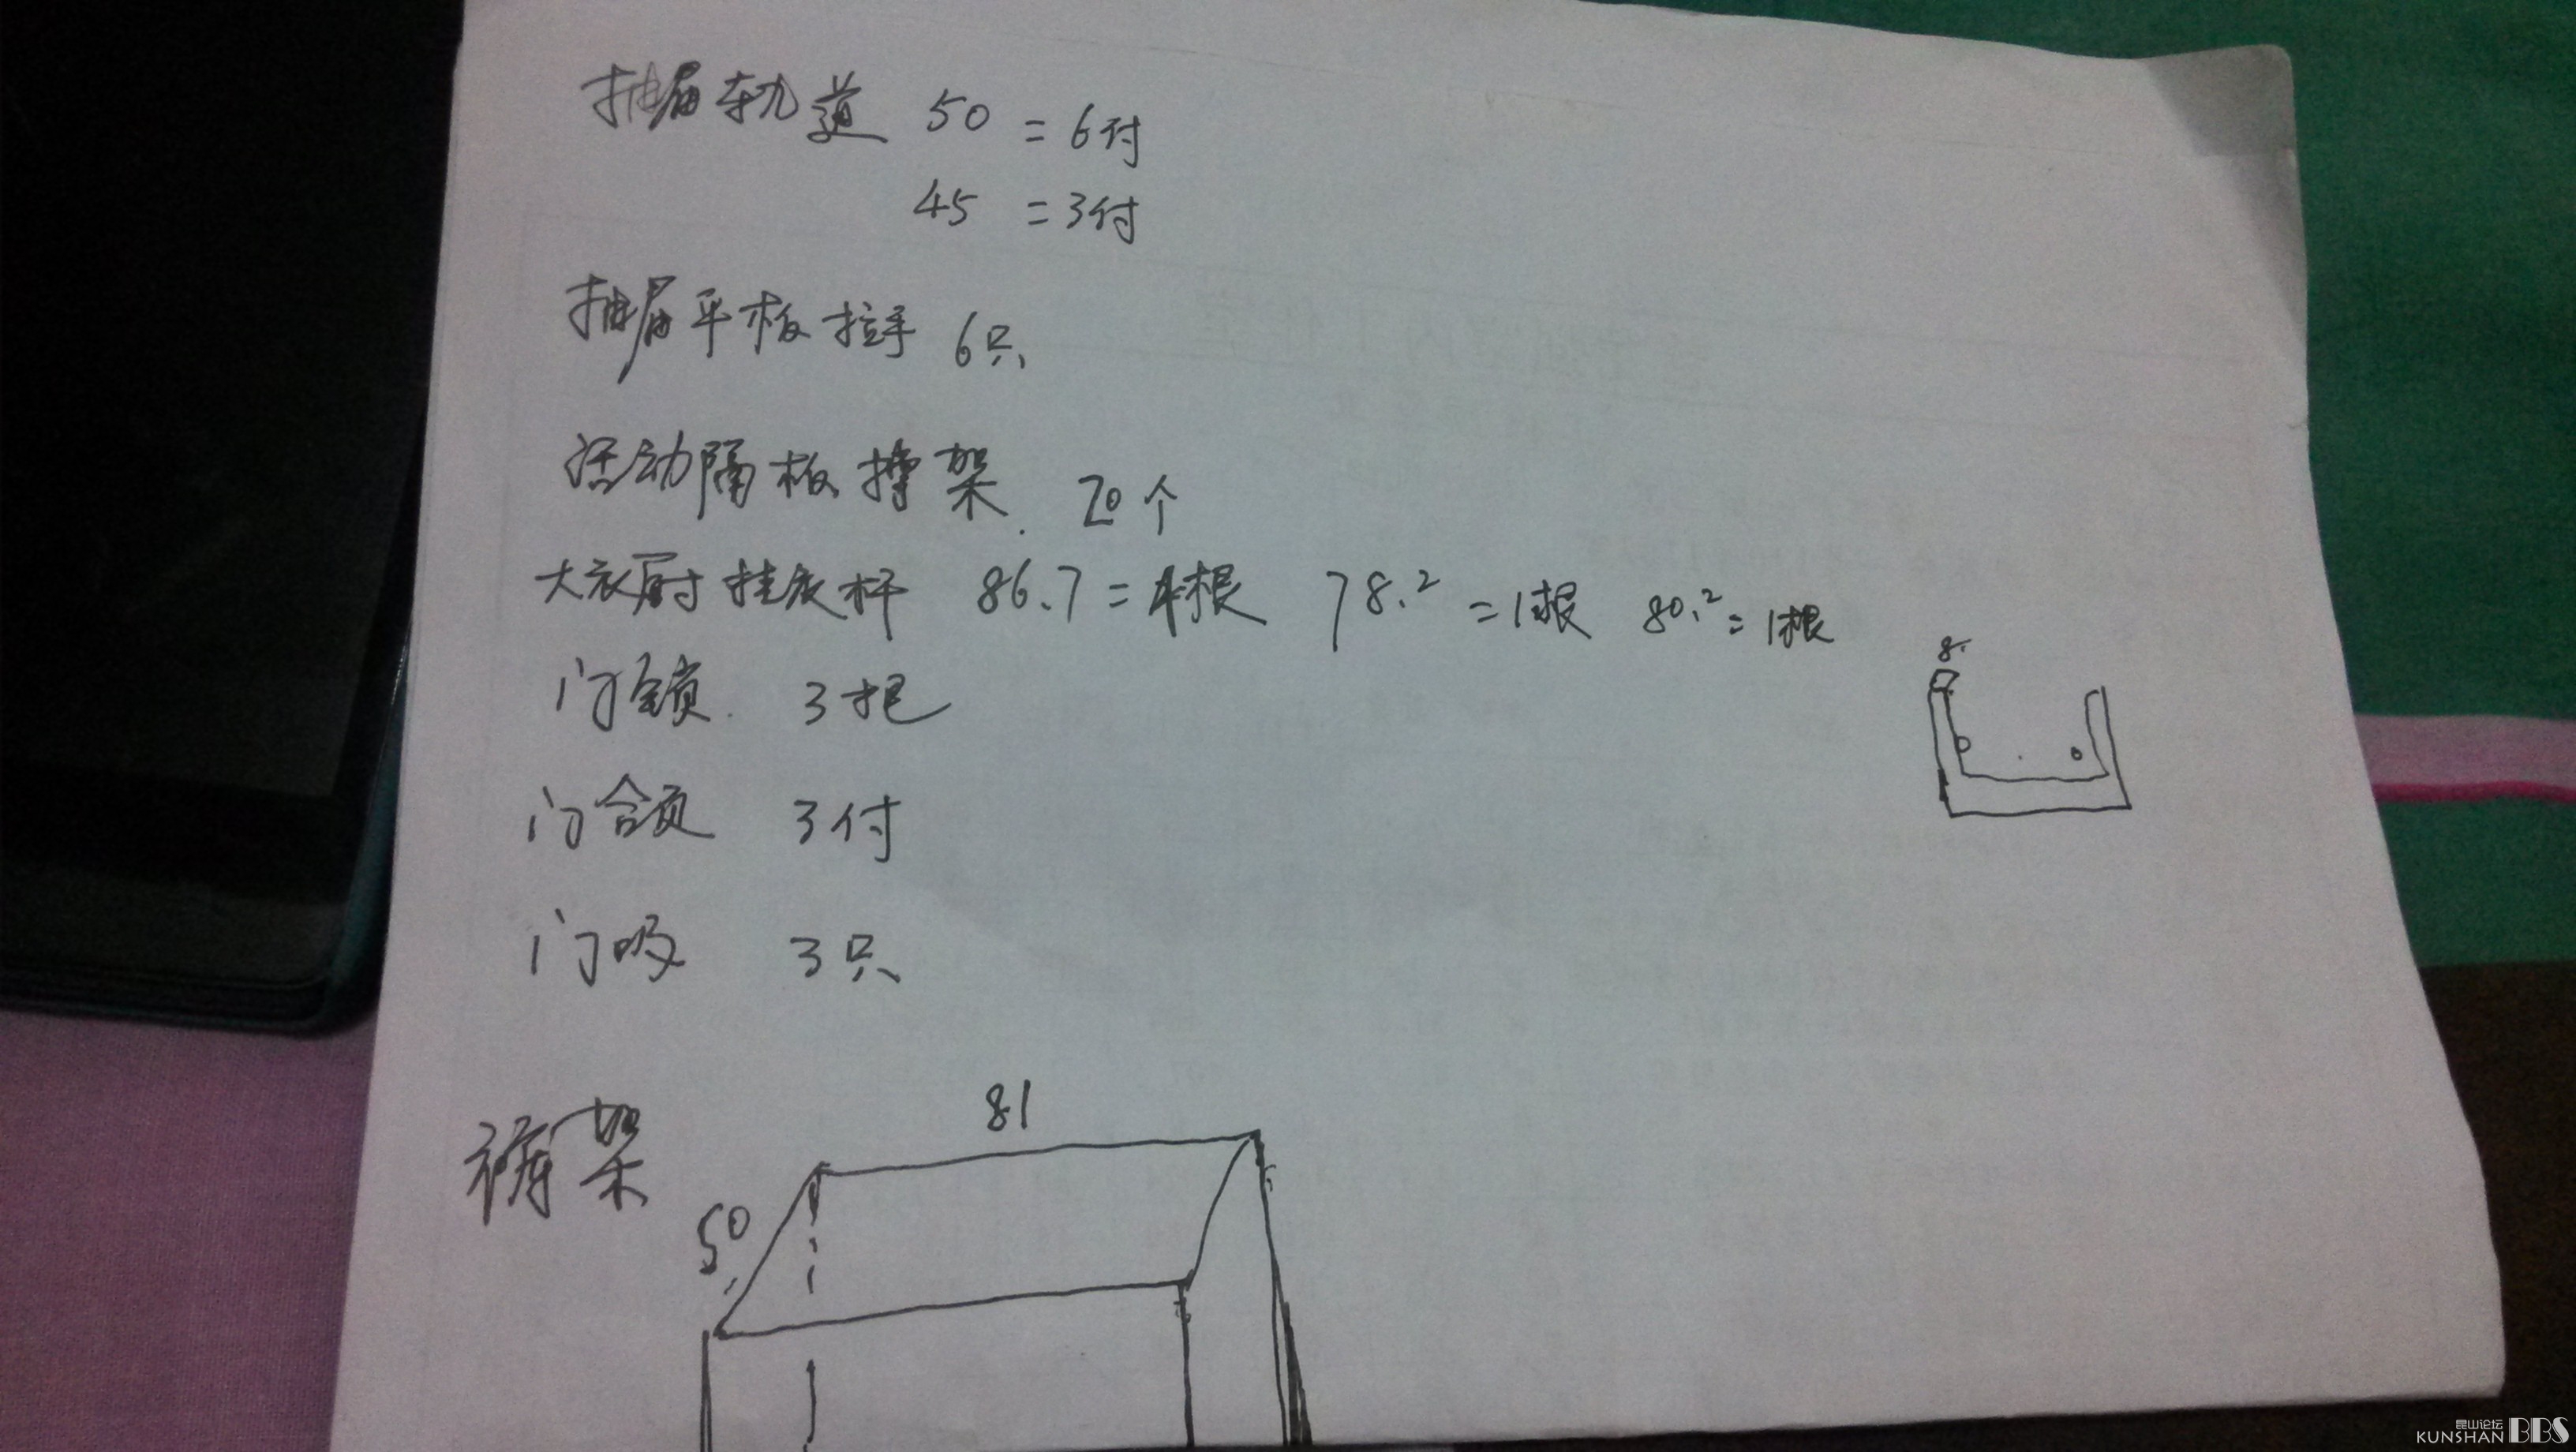 抽屉轨道 50 = 6付
45 = 3付
抽屉平板拉手 6只
活动隔板撑架. 20个
大衣厨挂衣杆 86.7 = 4根 78.2 = 1根 80.2 = 1根
8.
门锁. 3把
门合页 3付
门吸 3只
裤架
81
50
昆山论坛
KUNSHAN BBS